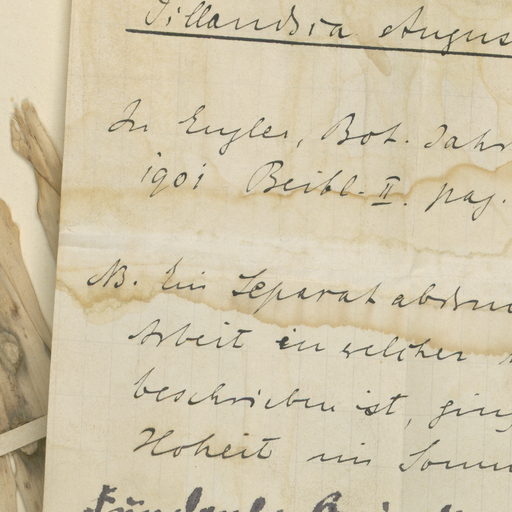 Tillandsia Augus
In Engler, Bot. Jahr
1901 Beibl. II. pag.
NB. Ein Separatabdru
Arbeit in welcher
beschrieben ist, ging
Hoheit im Somm